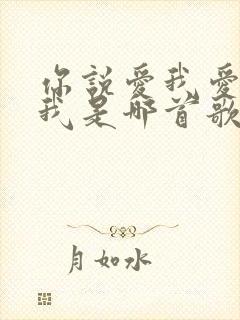 你說愛我愛
我是哪首歌
月如水